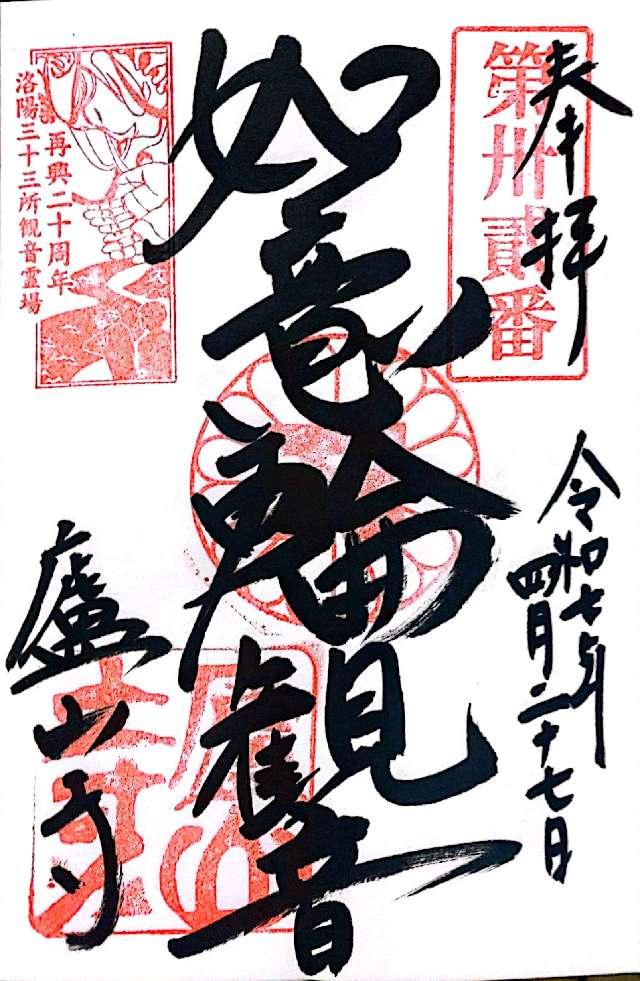 奉拝
第卅貳番
令和七年
四月二十七日
如意輪観音
再興二十周年
洛陽三十三所観音霊場
廬山寺